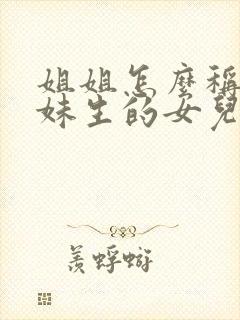 姐姐怎麼稱
妹生的女兒
羨蜉蝣